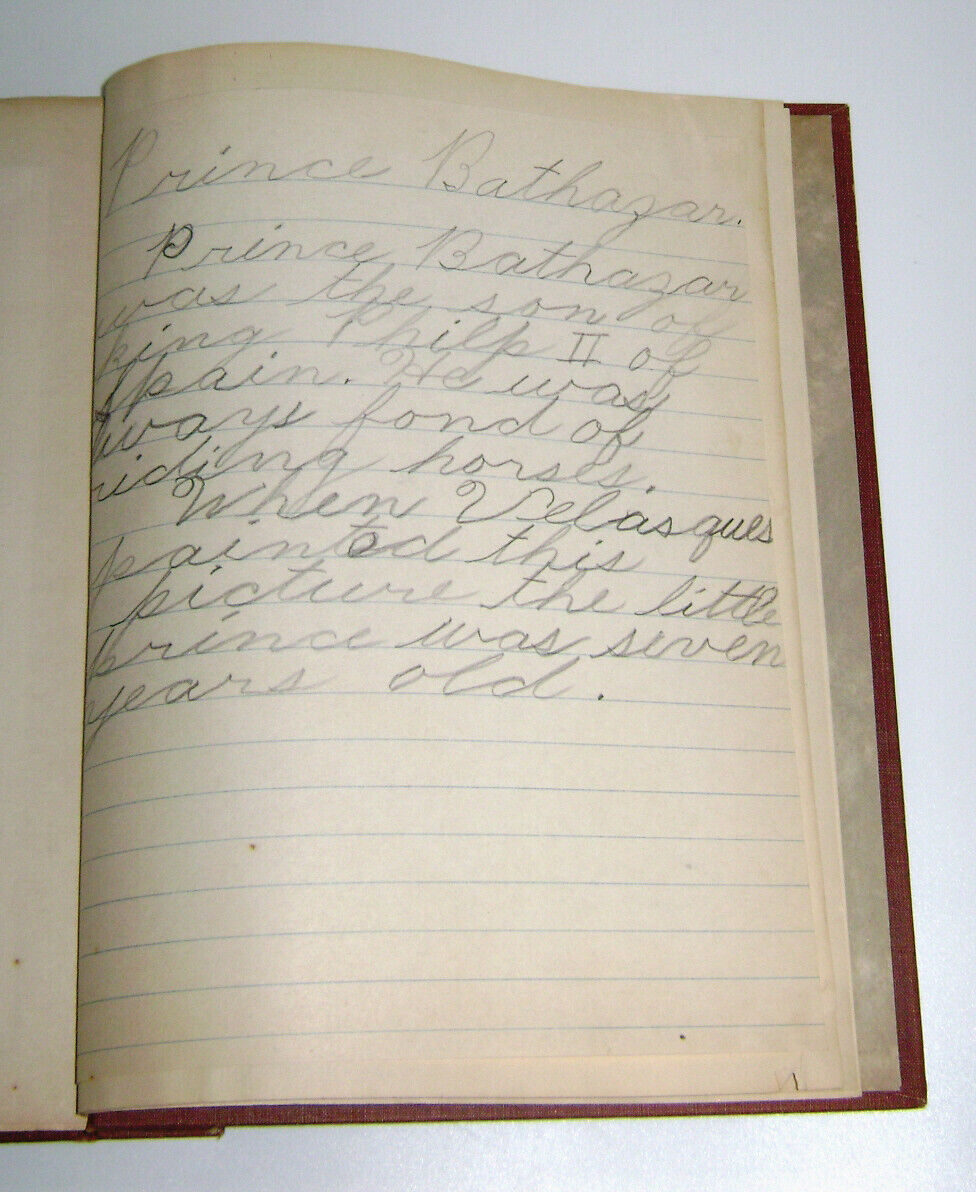 Prince Bathazar.
Prince Bathazar
was the son of
king Philp II of
Spain. He was
lways fond of
riding horses.
When Velasques
painted this
picture the little
prince was seven
years old.